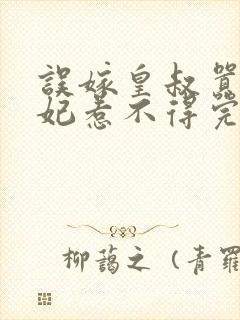 誤嫁皇叔
妃惹不得完
柳藹之（青羅